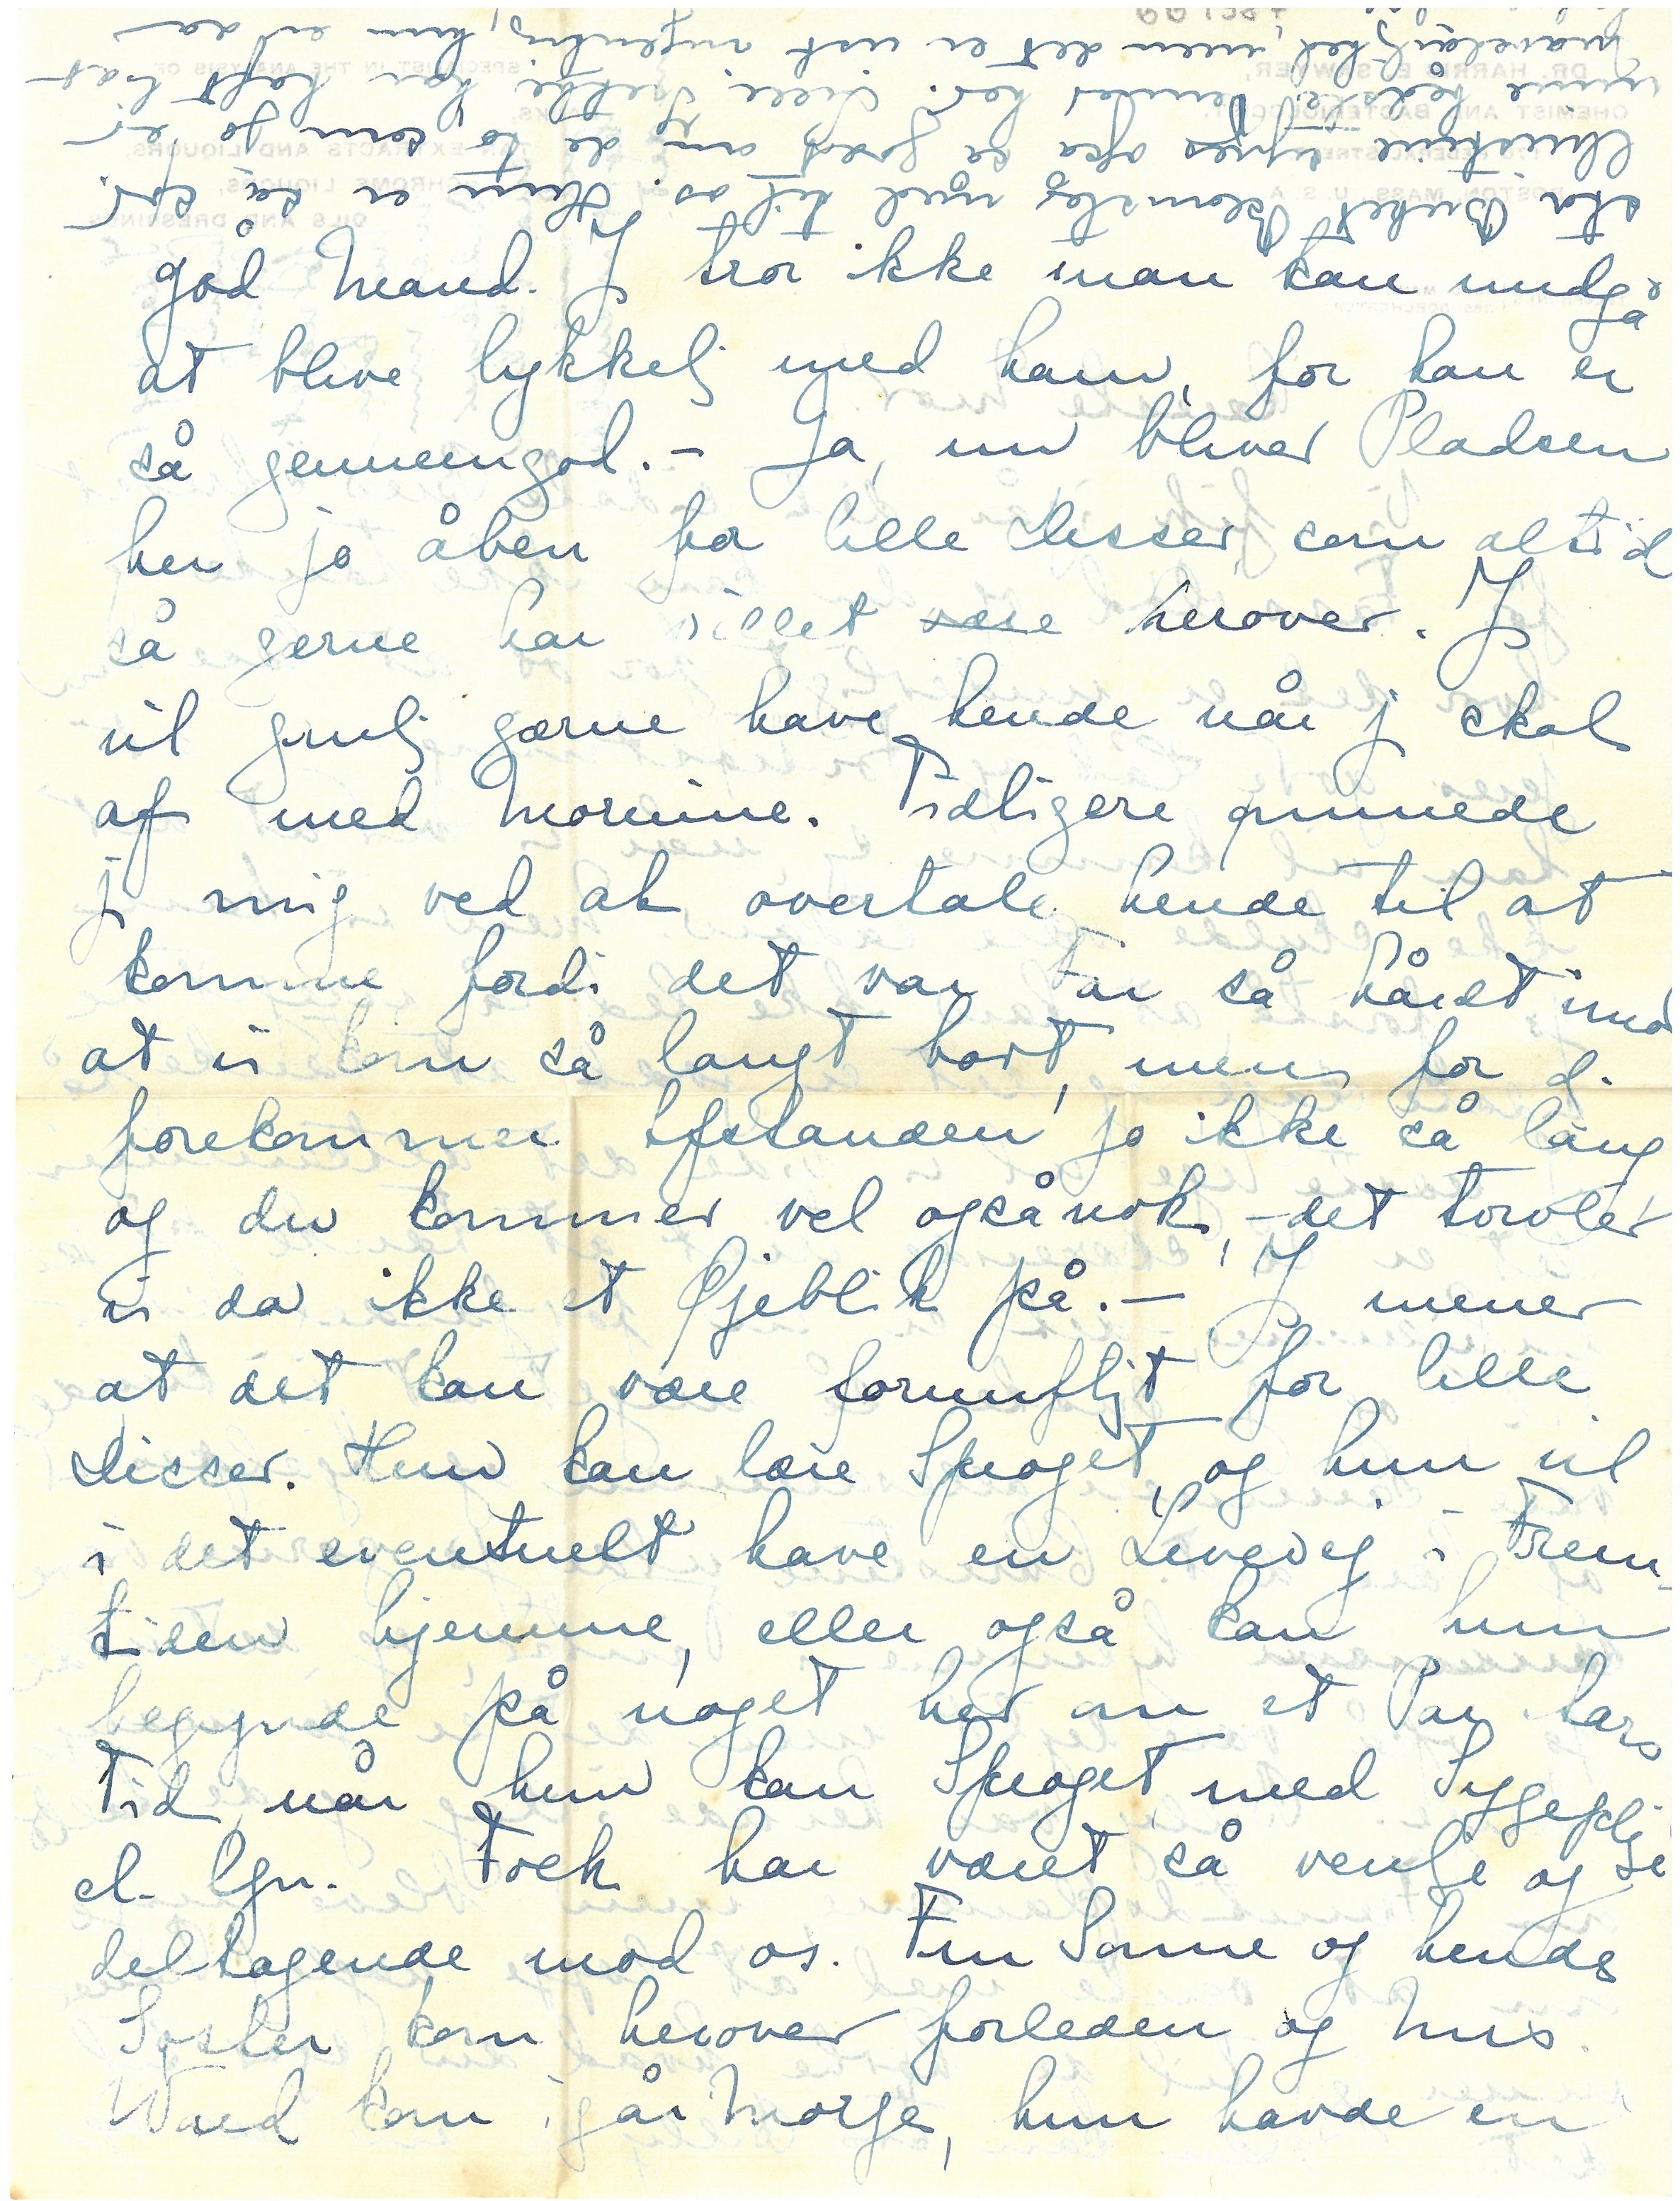 god Mand. J tror ikke man kan undgå
at blive lykkelj med ham, for han er
så gennemgod. - Ja, nu bliver Pladsen
her jo åben for lille Disser, som altid
så gerne har villet være herover. J
vil gruelj gærne have hende når j skal
af med Mornine. Tidligere grunnede
j mig ved at overtale hende til at
komme fordi det var Far så hårdt imod
at vi kom så langt bort, men for d.
forekommer Afstanden jo ikke så lang
og du kommer vel også nok, - det tvivler
vi da ikke et Øjeblik på. - J mener
at det kan være fornuftjt for lille
Disser. Hun kan lære Sproget, og hun vil
i det eventuelt have en Levevej i Frem-
tiden hjemme, eller også kan hun
begynde på noget her om et Par Aars
Tid, når hun kan Sproget, med Sygeplejе
el. lgn. Folk har været så venlje og
deltagende mod os. Fru Sonne og hendes
Søster kom herover forleden og Mrs.
Ward kom i går Morges, hun havde en
stor Buket Blomster med til os. Hun er så sød.
Christine synes også så godt om de to, som jo er
mine bedste Vender her. Lille Grethe har haft lidt
mavedårlighed, men det er vist ingenting, hun er da